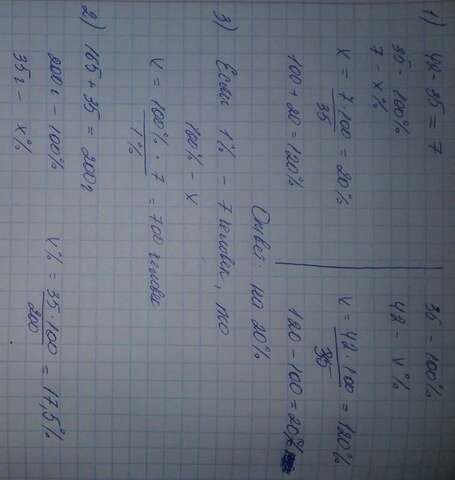 1) 42 - 35 = 7
35 - 100%
7 - x%
x = 7·100 / 35 = 20%
100 + 20 = 120%
35 - 100%
42 - x%
x = 42·100 / 35 = 120%
120 - 100 = 20%
Ответ: на 20%
3) Если 1% - 7 человек, то
100% - x
x = 100% · 7 / 1% = 700 человек
2) 165 + 35 = 200 г
200 г - 100%
35 г - x%
x% = 35·100 / 200 = 17,5%